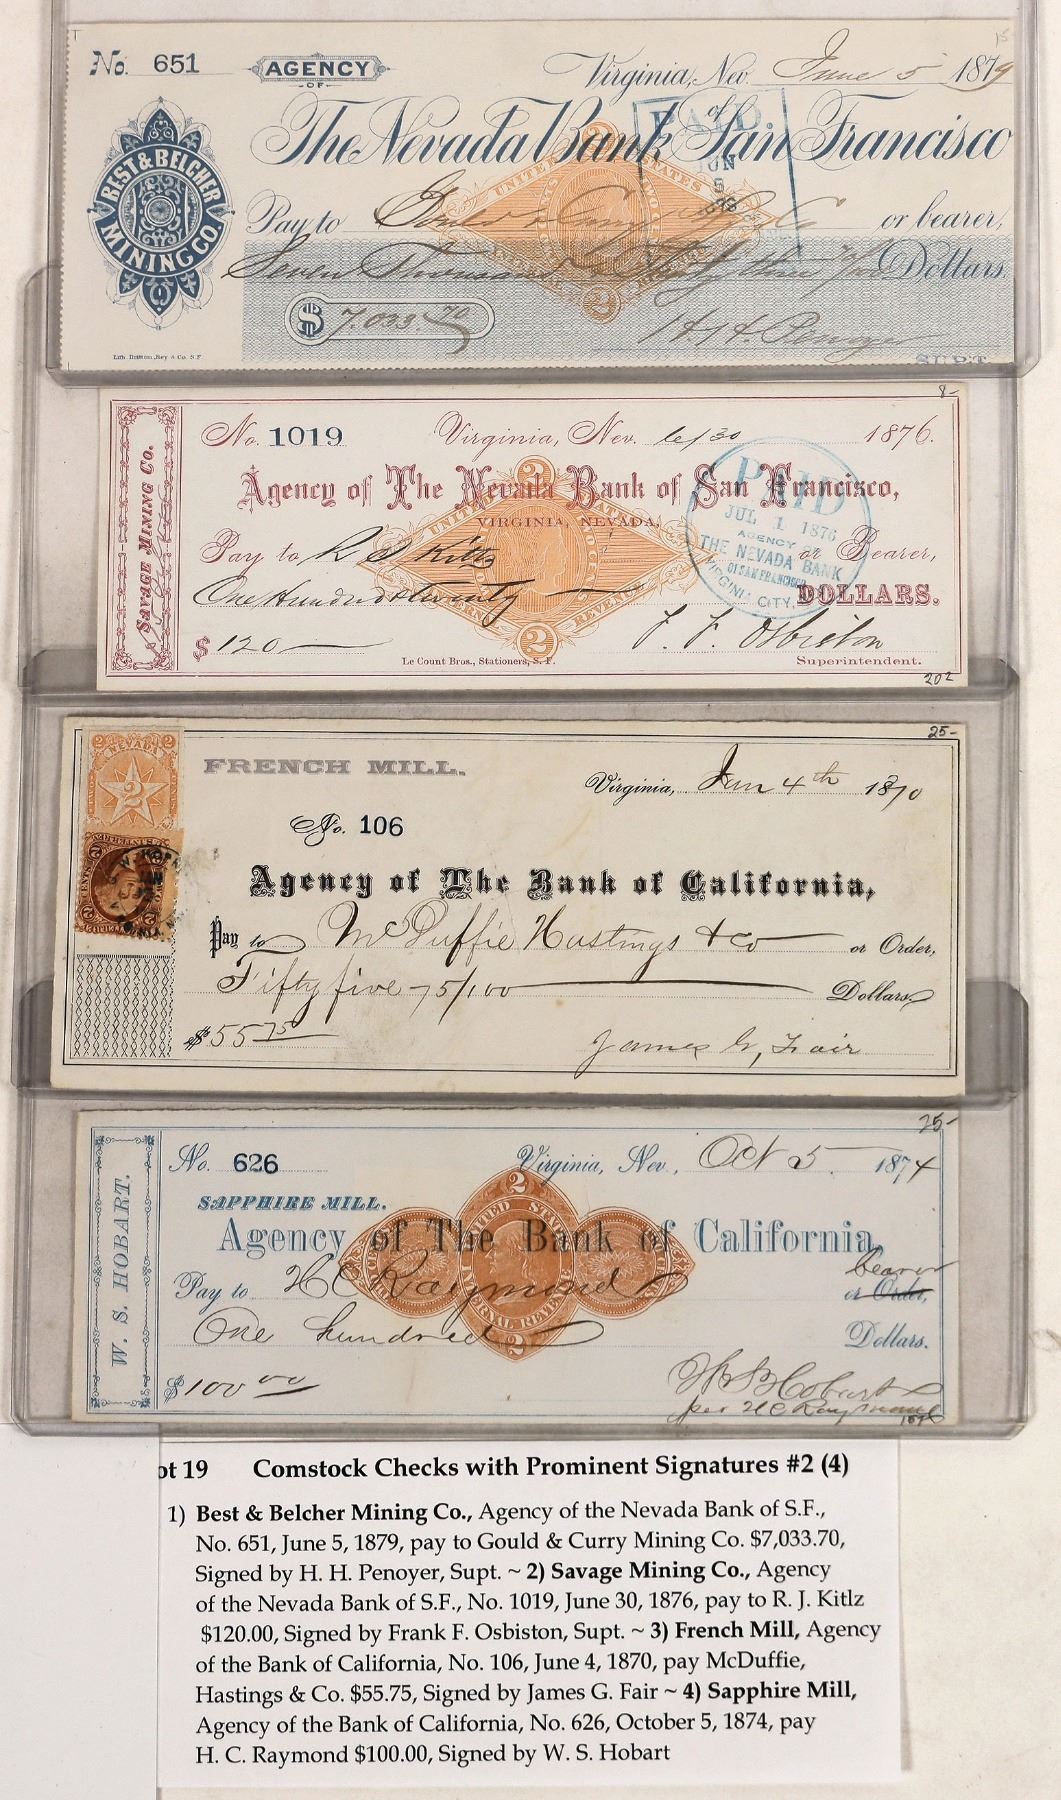 No. 651
AGENCY
OF
Virginia, Nev. June 5 1879
15-
The Nevada Bank of San Francisco
BEST & BELCHER
MINING CO.
PAID.
JUN
5
UNITED STATES
Pay to Gould & Curry Mg Co or bearer,
Seven Thousand & Thirty three 70/ Dollars.
$ 7,033.70
H. H. Penoyer
SUPT.
Lith. Britton, Rey & Co. S.F.
8-
SAVAGE MINING Co.
No. 1019 Virginia, Nev. 6/30 1876.
Agency of The Nevada Bank of San Francisco,
VIRGINIA, NEVADA,
PAID
JUL 1 1876
AGENCY
THE NEVADA BANK
OF SAN FRANCISCO
VIRGINIA CITY.
Pay to or Bearer,
One Hundred & twenty DOLLARS.
$ 120
F. F. Osbiston
Le Count Bros., Stationers, S. F.
Superintendent.
202
25-
2 NEVADA 2
2
FRENCH MILL.
Virginia, Jun 4th 1870
No. 106
Agency of The Bank of California,
Pay to McDuffie Hastings & Co or Order,
Fifty five 75/100 Dollars
$55 75
James G. Fair
25-
W. S. HOBART.
No. 626 Virginia, Nev., Oct 5 1874
SAPPHIRE MILL.
Agency of The Bank of California,
UNITED STATES
INTERNAL REVENUE
2
bearer
Pay to H C Raymond or Order,
One hundred Dollars.
$100 00
W S Hobart
per H C Raymond
ot 19 Comstock Checks with Prominent Signatures #2 (4)
1) Best & Belcher Mining Co., Agency of the Nevada Bank of S.F.,
No. 651, June 5, 1879, pay to Gould & Curry Mining Co. $7,033.70,
Signed by H. H. Penoyer, Supt. ~ 2) Savage Mining Co., Agency
of the Nevada Bank of S.F., No. 1019, June 30, 1876, pay to R. J. Kitlz
$120.00, Signed by Frank F. Osbiston, Supt. ~ 3) French Mill, Agency
of the Bank of California, No. 106, June 4, 1870, pay McDuffie,
Hastings & Co. $55.75, Signed by James G. Fair ~ 4) Sapphire Mill,
Agency of the Bank of California, No. 626, October 5, 1874, pay
H. C. Raymond $100.00, Signed by W. S. Hobart